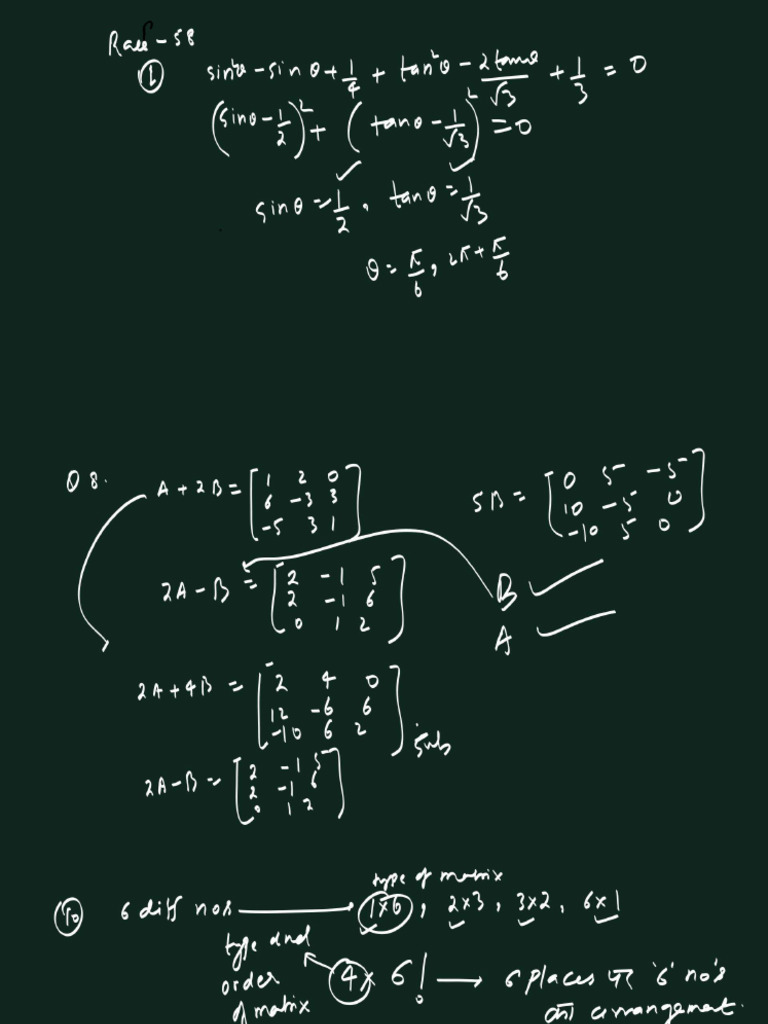 Race - 58
① sin²θ - sin θ + 1/4 + tan²θ - 2tanθ/√3 + 1/3 = 0
(sinθ - 1/2)² + (tanθ - 1/√3)² = 0
sinθ = 1/2, tanθ = 1/√3
θ = π/6, 2π + π/6
Q 8. A + 2B = [1 2 0
6 -3 3
-5 3 1]
5B = [0 5 -5
10 -5 0
-10 5 0]
2A - B = [2 -1 5
2 -1 6
0 1 2]
B ✓
A ✓
2A + 4B = [2 4 0
12 -6 6
-10 6 2]
sub
2A - B = [2 -1 5
2 -1 6
0 1 2]
type of matrix
10 6 diff nos → 1×6, 2×3, 3×2, 6×1
type and
order
of matrix
4 × 6! → 6 places '6' no's
arrangement.